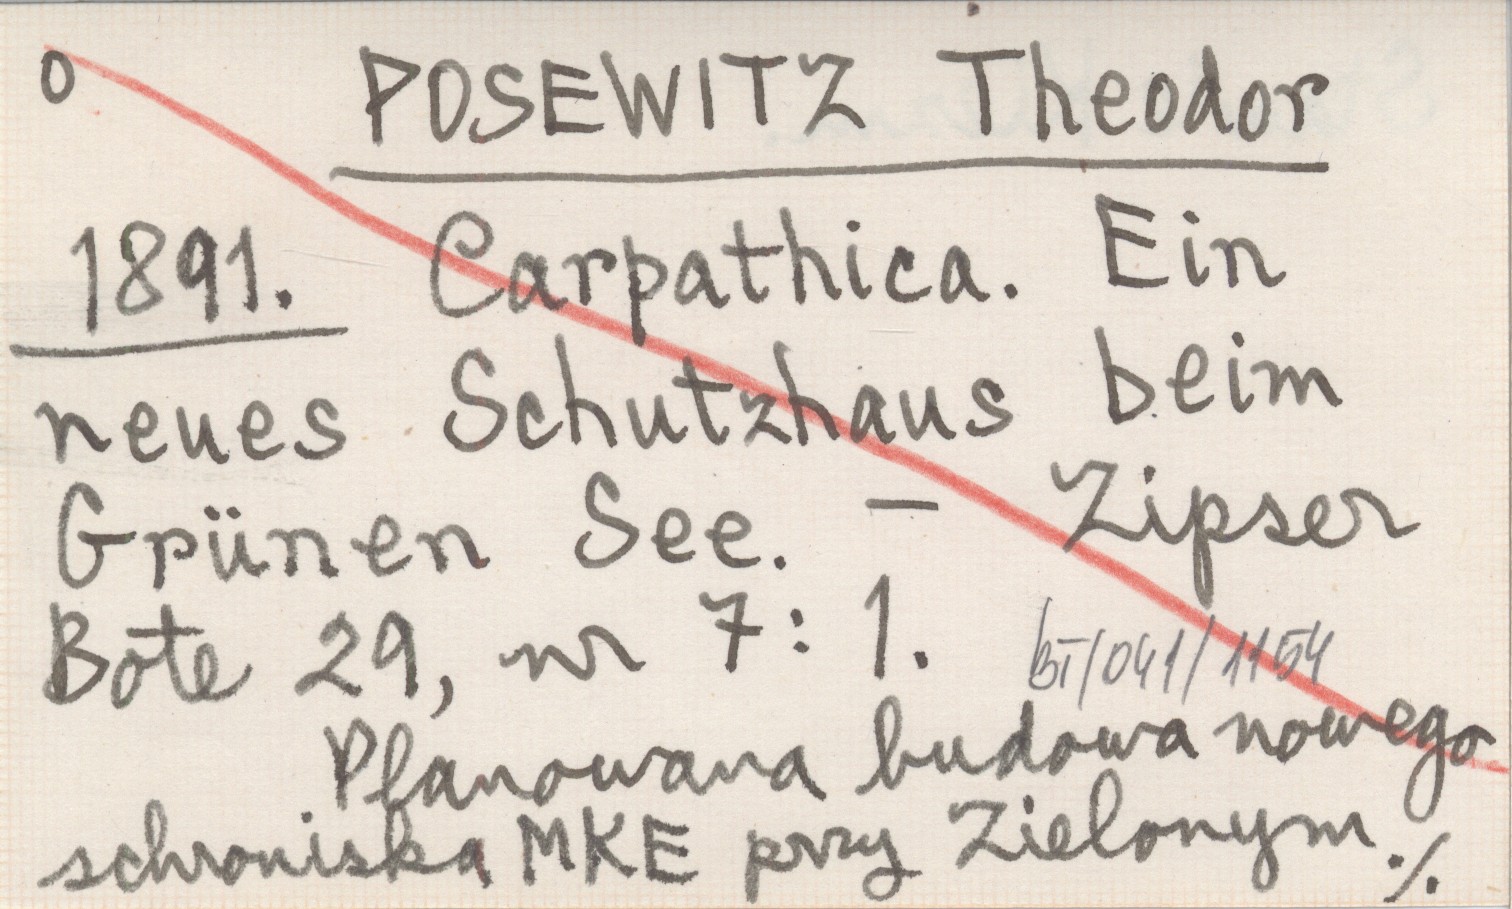 o POSEWITZ Theodor
1891. Carpathica. Ein
neues Schutzhaus beim
Grünen See. – Zipser
Bote 29, nr 7: 1. BT/041/1154
Planowana budowa nowego
schroniska MKE przy Zielonym ./.